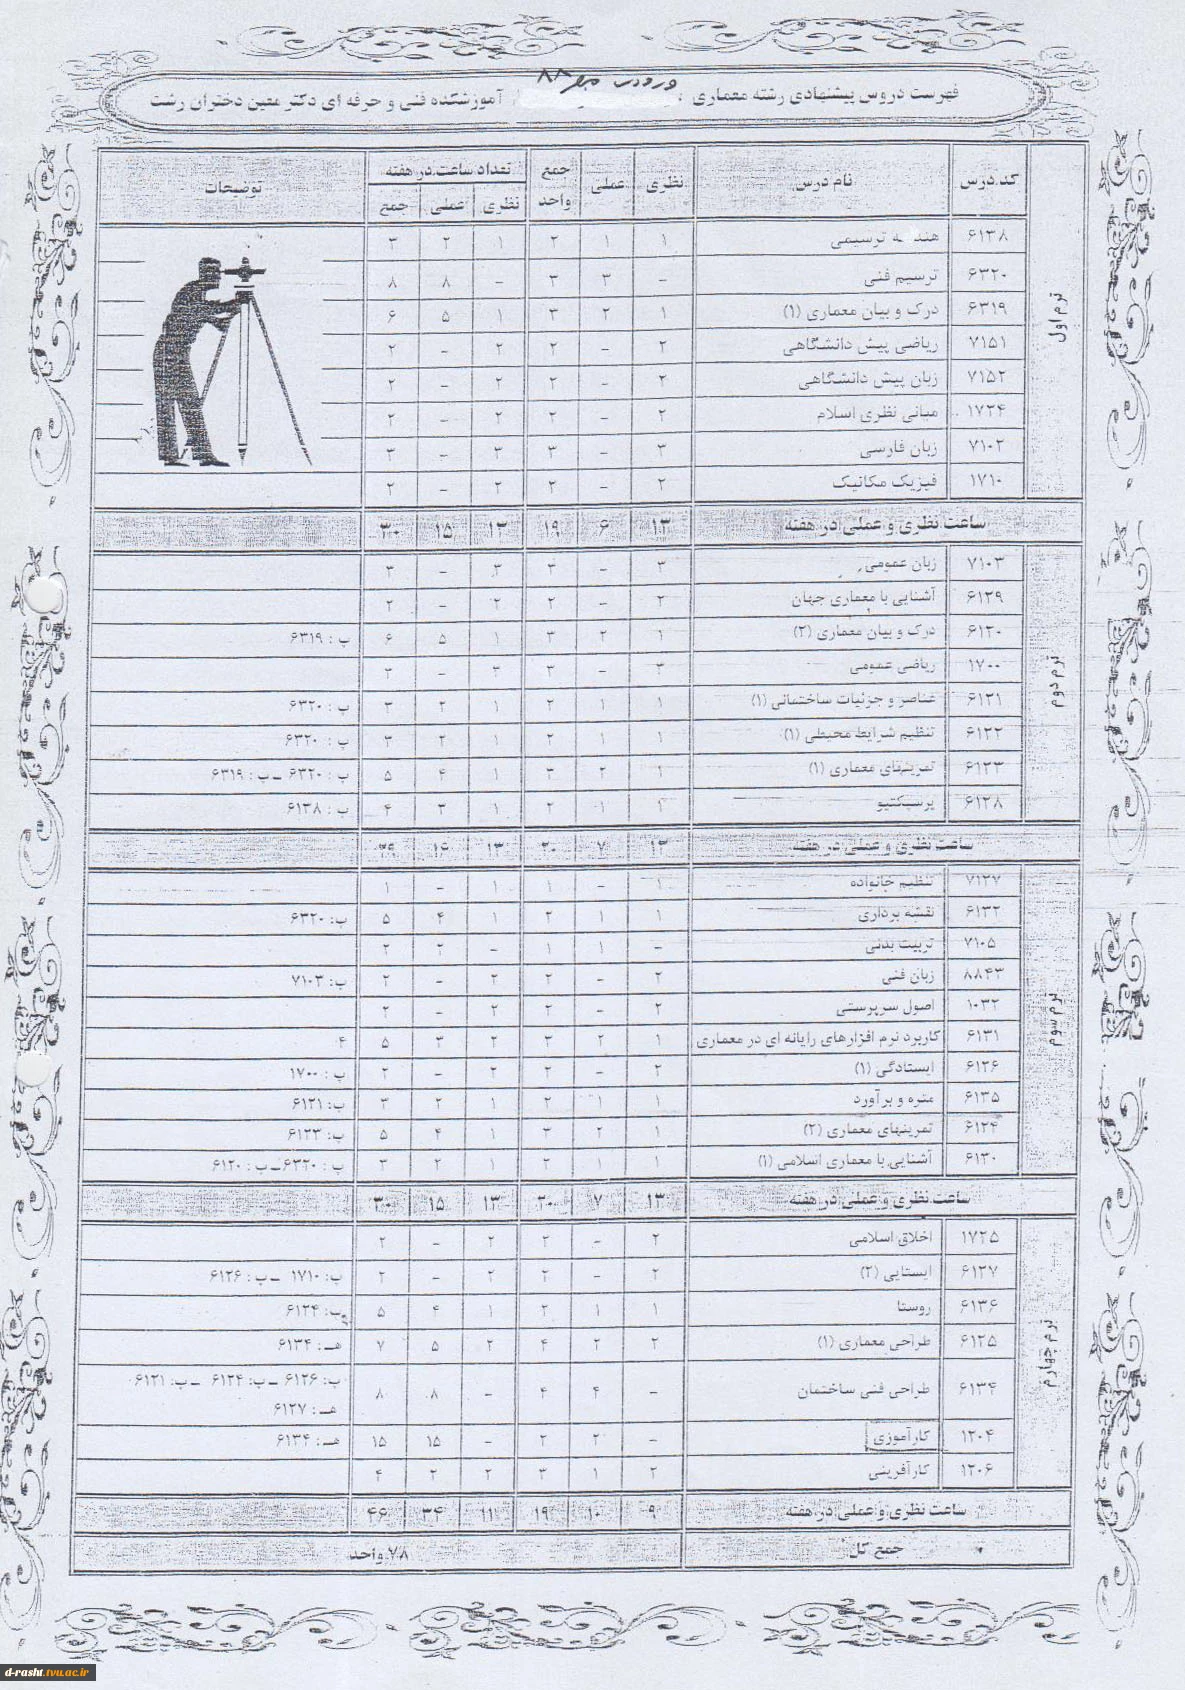 ورودی مهر ۸۸
فهرست دروس پیشنهادی رشته معماری ، آموزشکده فنی و حرفه ای دکتر معین دختران رشت
کد درس نام درس نظری عملی جمع واحد تعداد ساعت در هفته توضیحات
نظری عملی جمع
ترم اول
۶۱۳۸ هندسه ترسیمی ۱ ۱ ۲ ۱ ۲ ۳
۶۳۲۰ ترسیم فنی - ۳ ۳ - ۸ ۸
۶۳۱۹ درک و بیان معماری (۱) ۱ ۲ ۳ ۱ ۵ ۶
۷۱۵۱ ریاضی پیش دانشگاهی ۲ - ۲ ۲ - ۲
۷۱۵۲ زبان پیش دانشگاهی ۲ - ۲ ۲ - ۲
۱۷۲۴ مبانی نظری اسلام ۲ - ۲ ۲ - ۲
۷۱۰۲ زبان فارسی ۳ - ۳ ۳ - ۳
۱۷۱۰ فیزیک مکانیک ۲ - ۲ ۲ - ۲
ساعت نظری و عملی در هفته ۱۳ ۶ ۱۹ ۱۳ ۱۵ ۳۰
ترم دوم
۷۱۰۳ زبان عمومی ۳ - ۳ ۳ - ۳
۶۱۲۹ آشنایی با معماری جهان ۲ - ۲ ۲ - ۲
۶۱۲۰ درک و بیان معماری (۲) ۱ ۲ ۳ ۱ ۵ ۶ پ : ۶۳۱۹
۱۷۰۰ ریاضی عمومی ۳ - ۳ ۳ - ۳
۶۱۲۱ عناصر و جزئیات ساختمانی (۱) ۱ ۱ ۲ ۱ ۲ ۳ پ : ۶۳۲۰
۶۱۲۲ تنظیم شرایط محیطی (۱) ۱ ۱ ۲ ۱ ۲ ۳ پ : ۶۳۲۰
۶۱۲۳ تمرینهای معماری (۱) ۱ ۲ ۳ ۱ ۴ ۵ پ : ۶۳۲۰ ـ پ : ۶۳۱۹
۶۱۲۸ پرسپکتیو ۱ ۱ ۲ ۱ ۳ ۴ پ : ۶۱۳۸
ساعت نظری و عملی در هفته ۱۳ ۷ ۲۰ ۱۳ ۱۶ ۲۹
ترم سوم
۷۱۲۷ تنظیم خانواده ۱ - ۱ ۱ - ۱
۶۱۳۲ نقشه برداری ۱ ۱ ۲ ۱ ۴ ۵ پ: ۶۳۲۰
۷۱۰۵ تربیت بدنی - ۱ ۱ - ۲ ۲
۸۸۴۳ زبان فنی ۲ - ۲ ۲ - ۲ پ: ۷۱۰۳
۱۰۳۲ اصول سرپرستی ۲ - ۲ ۲ - ۲
۶۱۳۱ کاربرد نرم افزارهای رایانه ای در معماری ۱ ۲ ۳ ۲ ۳ ۵ ۴
۶۱۲۶ ایستادگی (۱) ۲ - ۲ ۲ - ۲ پ : ۱۷۰۰
۶۱۳۵ متره و برآورد ۱ ۱ ۲ ۱ ۲ ۳ پ: ۶۱۲۱
۶۱۲۴ تمرینهای معماری (۲) ۱ ۲ ۳ ۱ ۴ ۵ پ: ۶۱۲۳
۶۱۳۰ آشنایی با معماری اسلامی (۱) ۱ ۱ ۲ ۱ ۲ ۳ پ : ۶۳۲۰ ـ پ : ۶۱۲۰
ساعت نظری و عملی در هفته ۱۳ ۷ ۲۰ ۱۳ ۱۵ ۳۰
ترم چهارم
۱۷۲۵ اخلاق اسلامی ۲ - ۲ ۲ - ۲
۶۱۲۷ ایستایی (۲) ۲ - ۲ ۲ - ۲ پ: ۱۷۱۰ ـ پ: ۶۱۲۶
۶۱۳۶ روستا ۱ ۱ ۲ ۱ ۴ ۵ پ: ۶۱۲۴
۶۱۲۵ طراحی معماری (۱) ۲ ۲ ۴ ۲ ۵ ۷ هـ : ۶۱۳۴
۶۱۳۴ طراحی فنی ساختمان - ۴ ۴ - ۸ ۸ پ: ۶۱۲۶ ـ پ: ۶۱۲۴ ـ پ: ۶۱۲۱
هـ : ۶۱۲۷
۱۲۰۴ کارآموزی - ۲ ۲ - ۱۵ ۱۵ هـ : ۶۱۳۴
۱۲۰۶ کارآفرینی ۲ ۱ ۳ ۲ ۲ ۴
ساعت نظری و عملی در هفته ۹ ۱۰ ۱۹ ۱۱ ۳۴ ۴۶
جمع کل ۷۸ واحد
d-rasht.tvu.ac.ir